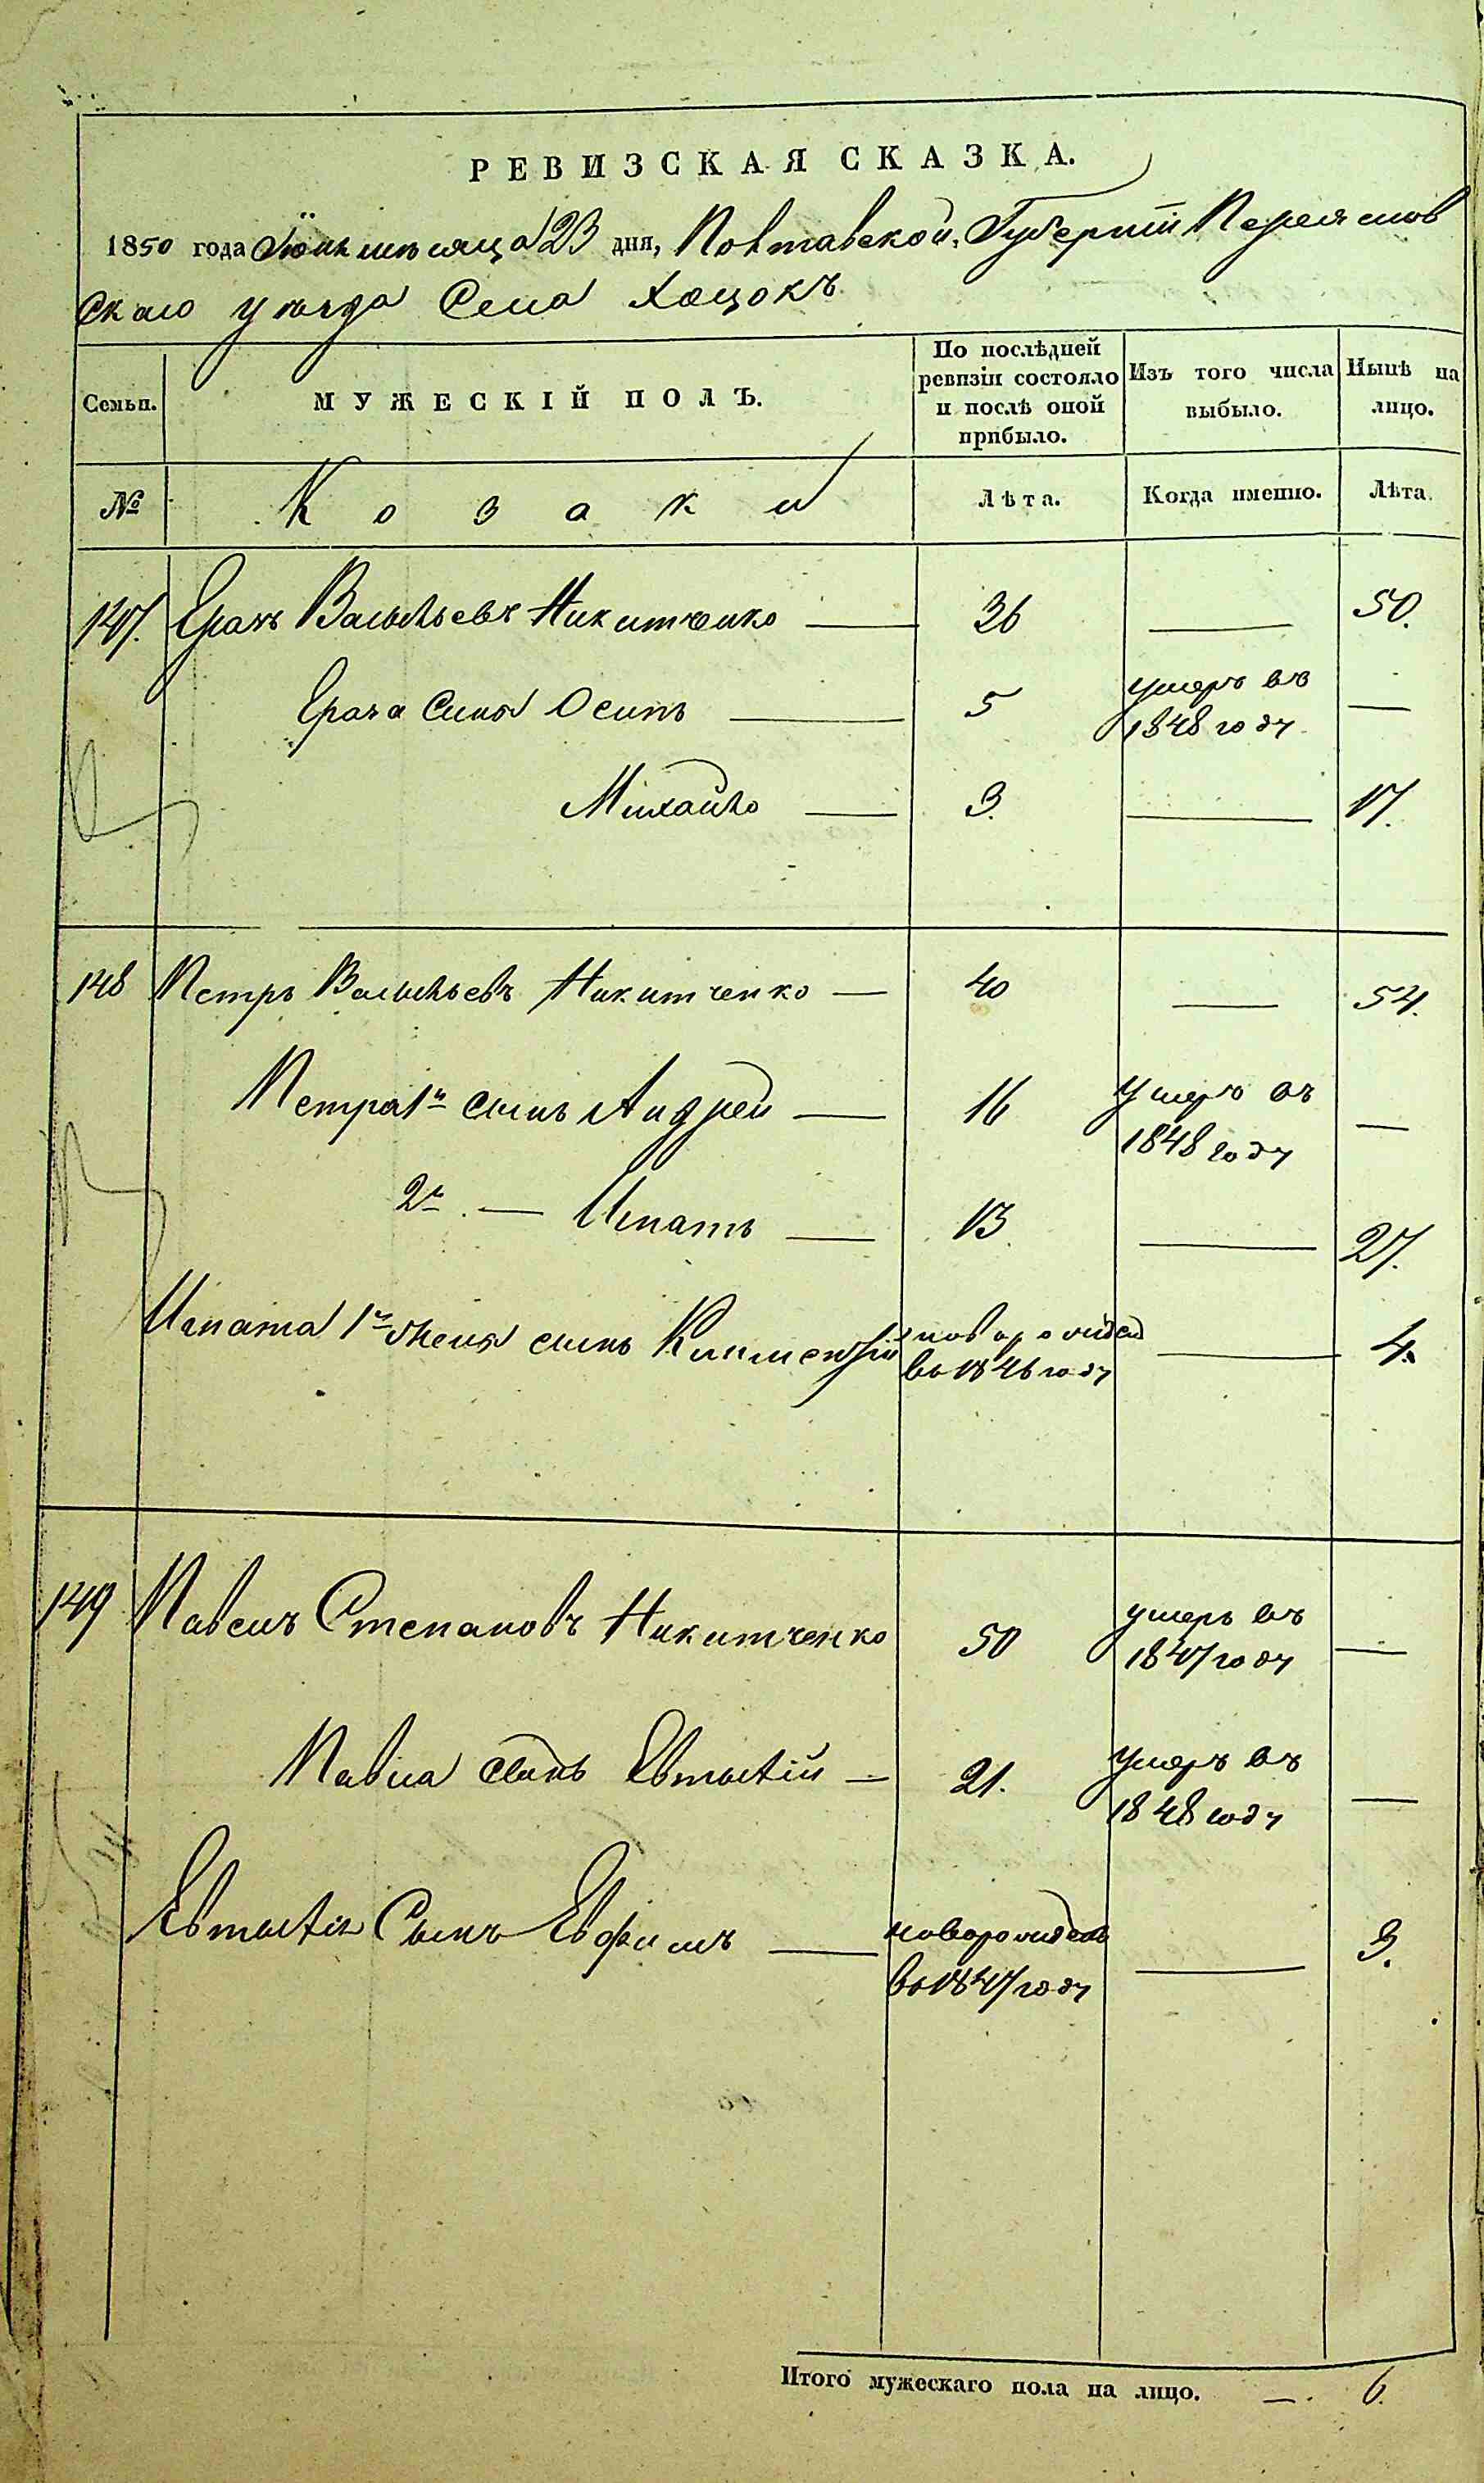 РЕВИЗСКАЯ СКАЗКА.
1850 года Іюнь мѣсяца 23 дня, Полтавской, Губерніи Переяслов
скаго уѣзда Села Хоцокъ
Семьи. МУЖЕСКІЙ ПОЛЪ. По послѣдней ревизіи состояло и послѣ оной прибыло. Изъ того числа выбыло. Нынѣ на лицо.
№ Козаки Лѣта. Когда именно. Лѣта.
147. Васильевъ Никитченко — 36 — 50.
сынъ Осипъ — 5 умеръ въ 1848 году —
Михайло — 3. — 17.
148 Петръ Васильевъ Никитченко — 40 — 54.
Петра 1й сынъ Андрей — 16 умеръ въ 1848 году —
2й — Ипатъ — 13 — 27.
Ипата 1й жены сынъ Климентій новорожден въ 1846 году — 4.
149 Павелъ Степановъ Никитченко 50 умеръ въ 1847 году —
Павла сынъ Евтихій — 21. умеръ въ 1848 году —
Евтихія Сынъ Евфимъ — новорожден въ 1847 году — 3.
Итого мужескаго пола на лицо. — . 6.